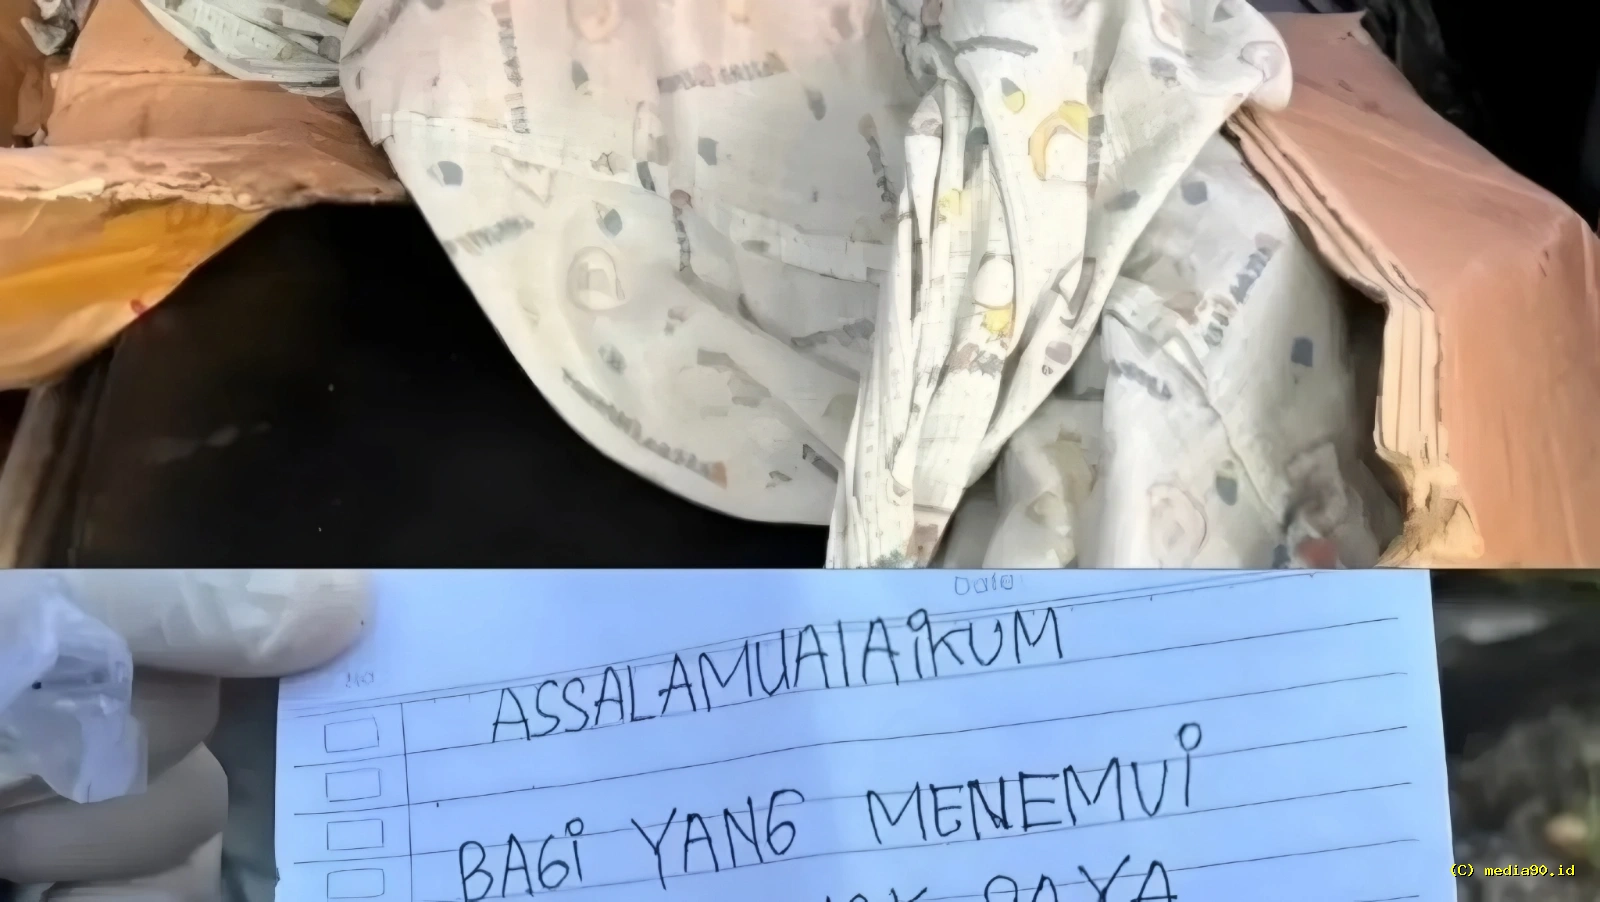 Date
No
ASSALAMUALAiKUM
BAGi YANG MENEMUi
SAYA
(C) media90.id